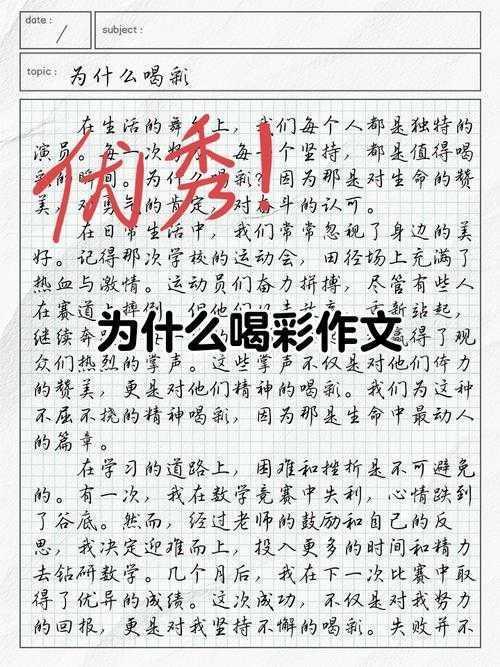 date :
subject :
topic : 为什么喝彩
在生活的舞台上，我们每个人都是独特的
演员。每一次努力，每一个坚持，都是值得喝
彩的瞬间。为什么喝彩？因为那是对生命的赞
美，对勇气的肯定，对奋斗的认可。
优秀！
在日常生活中，我们常常忽视了身边的美
好。记得那次学校的运动会，田径场上充满了
热血与激情。运动员们奋力拼搏，尽管有些人
在赛道上摔倒，但他们重新站起，
继续奔赢得了观
为什么喝彩作文
众们热烈的掌声。这些掌声不仅是对他们体力
的赞美，更是对他们精神的喝彩。我们为这种
不屈不挠的精神喝彩，因为那是生命中最动人
的篇章。
在学习的道路上，困难和挫折是不可避免
的。有一次，我在数学竞赛中失利，心情跌到
了谷底。然而，经过老师的鼓励和自己的反
思，我决定迎难而上，投入更多的时间和精力
去钻研数学。几个月后，我在下一次比赛中取
得了优异的成绩。这次成功，不仅是对我努力
的回报，更是对我坚持不懈的喝彩。失败并不